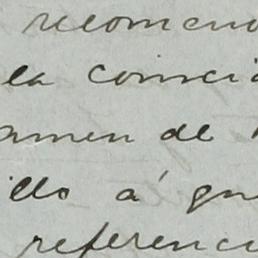 recomend
la coinci
amen de
illo á que
referenci